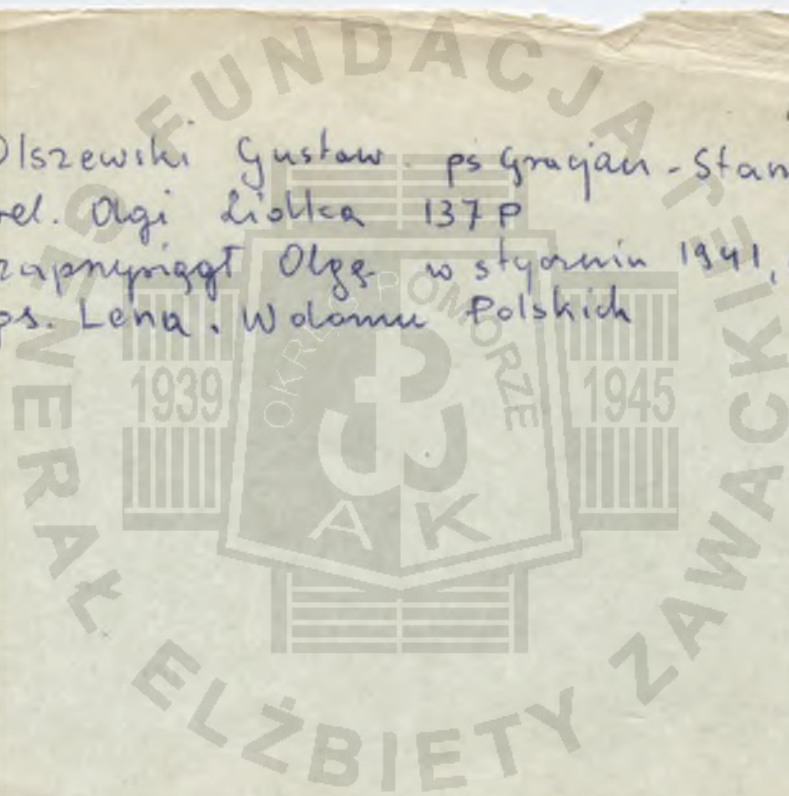 Olszewski Gustaw. ps Gracjan - Stan
rel. Olgi Ziółka 137 P
zaprzysiągł Olgę w styczniu 1941,
ps. Lena. W domu Polskich
FUNDACJA
GENERAŁ ELŻBIETY ZAWACKIEJ
OKRĘG POMORZE
1939
1945
AK